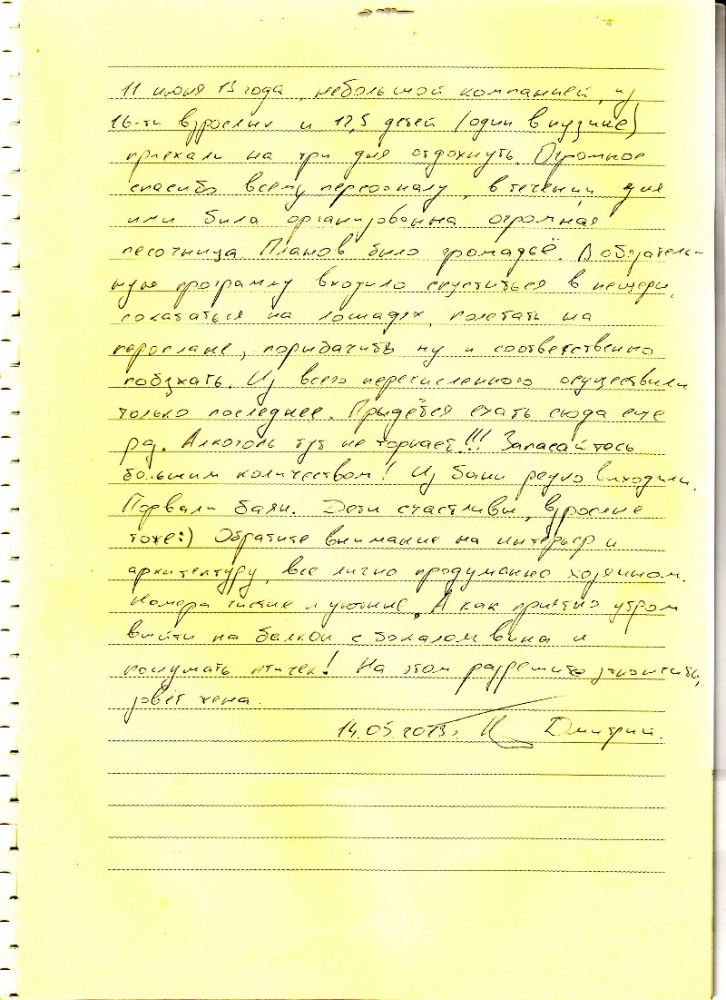 11 июня 13 года, небольшой компанией, из
16-ти взрослых и 12,5 детей (один в пузике)
приехали на три дня отдохнуть. Огромное
спасибо всему персоналу, в течении дня
ими была организованна огромная
песочница. Планов было громадьё. В обязатель-
ную программу входило спуститься в пещеры,
покататься на лошадях, полетать на
пароплане, порыбачить ну и соответственно
побухать. Из всего перечисленного осуществили
только последнее. Прыдётся ехать сюда еще
раз. Алкоголь тут не торкает!!! Запасайтесь
большим количеством! Из бани редко выходили.
Порвали баян. Дети счастливы, взрослые
тоже:) Обратите внимание на интерьер и
архитектуру, все лично продуманно хозяином.
Номера чистые и уютные. А как приятно утром
выйти на балкон с бокалом вина и
послушать птичек! На этом разрешите закончить,
зовёт жена.
14.05.2013г. Дмитрий.